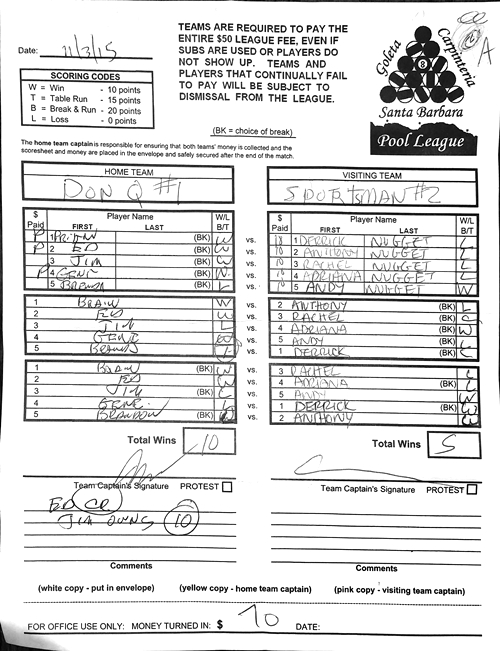 TEAMS ARE REQUIRED TO PAY THE
ENTIRE $50 LEAGUE FEE, EVEN IF
SUBS ARE USED OR PLAYERS DO
NOT SHOW UP. TEAMS AND
PLAYERS THAT CONTINUALLY FAIL
TO PAY WILL BE SUBJECT TO
DISMISSAL FROM THE LEAGUE.
Date: 11/3/15
A
Goleta
Carpinteria
8
Santa Barbara
Pool League
SCORING CODES
W = Win - 10 points
T = Table Run - 15 points
B = Break & Run - 20 points
L = Loss - 0 points
(BK = choice of break)
The home team captain is responsible for ensuring that both teams' money is collected and the
scoresheet and money are placed in the envelope and safely secured after the end of the match.
HOME TEAM VISITING TEAM
DON Q #1 SPORTSMAN #2
$ Paid Player Name FIRST LAST W/L B/T $ Paid Player Name FIRST LAST W/L B/T
P 1 (BK) W vs. 10 1 DERRICK NUGGET L
P 2 ED (BK) W vs. 10 2 ANTHONY NUGGET L
3 JIM (BK) W vs. 10 3 RACHEL NUGGET L
P 4 GENE (BK) W vs. 10 4 ADRIANA NUGGET L
5 (BK) L vs. 10 5 ANDY NUGGET W
1 BRAIN W vs. 2 ANTHONY (BK) L
2 ED W vs. 3 RACHEL (BK) L
3 JIM L vs. 4 ADRIANA (BK) W
4 GENE vs. 5 ANDY (BK) L
5 vs. 1 DERRICK (BK)
1 (BK) W vs. 3 RACHEL L
2 ED W vs. 4 ADRIANA (BK) L
3 JIM (BK) vs. 5 ANDY
4 GENE L vs. 1 DERRICK (BK) W
5 BRANDON (BK) vs. 2 ANTHONY
Total Wins 10 Total Wins 5
Team Captain's Signature PROTEST Team Captain's Signature PROTEST
ED
JIM OWNS 10
Comments Comments
(white copy - put in envelope) (yellow copy - home team captain) (pink copy - visiting team captain)
FOR OFFICE USE ONLY: MONEY TURNED IN: $ 70 DATE: